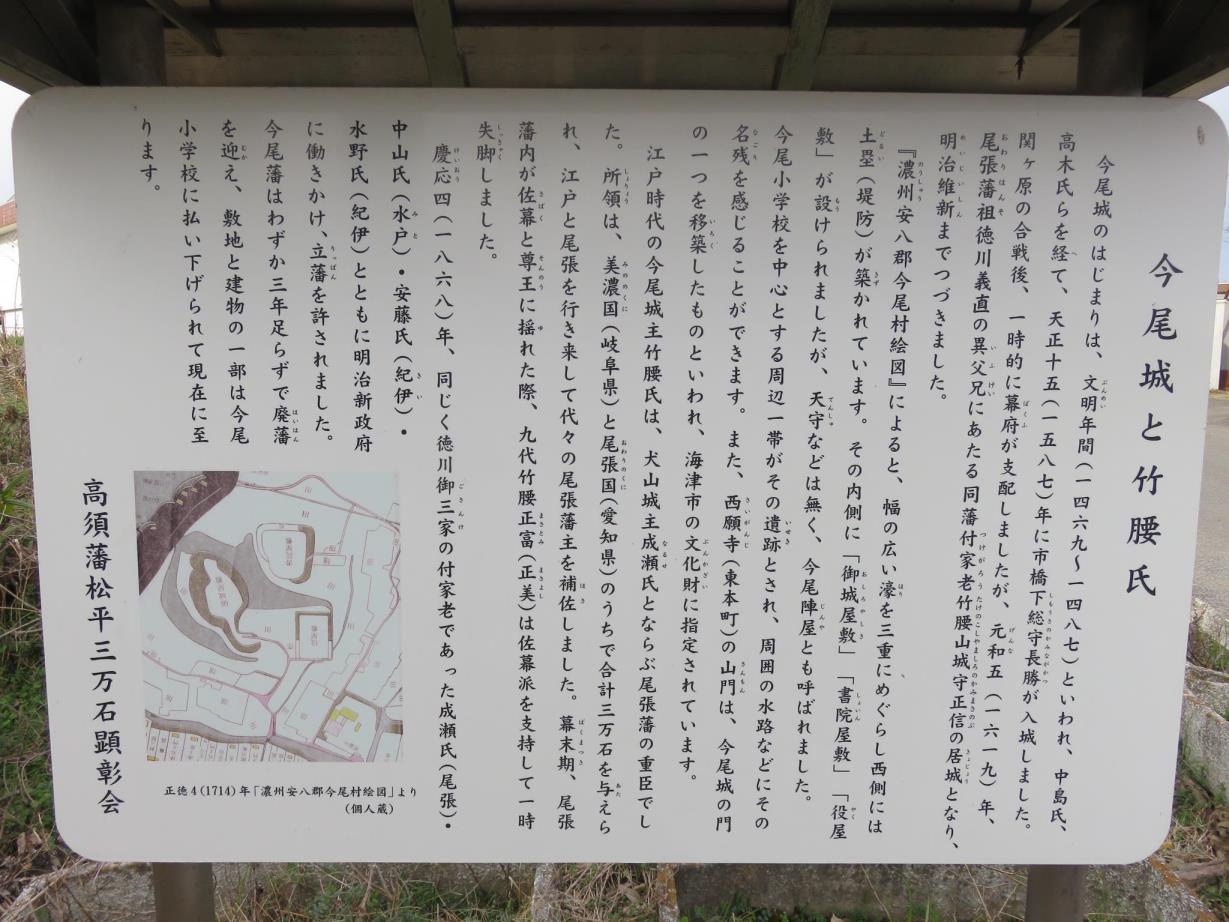 今尾城と竹腰氏
今尾城のはじまりは、文明年間（一四六九～一四八七）といわれ、中島氏、
高木氏らを経て、天正十五（一五八七）年に市橋下総守長勝が入城しました。
関ヶ原の合戦後、一時的に幕府が支配しましたが、元和五（一六一九）年、
尾張藩祖徳川義直の異父兄にあたる同藩付家老竹腰山城守正信の居城となり、
明治維新までつづきました。
『濃州安八郡今尾村絵図』によると、幅の広い濠を三重にめぐらし西側には
土塁（堤防）が築かれています。その内側に「御城屋敷」「書院屋敷」「役屋
敷」が設けられましたが、天守などは無く、今尾陣屋とも呼ばれました。
今尾小学校を中心とする周辺一帯がその遺跡とされ、周囲の水路などにその
名残を感じることができます。また、西願寺（東本町）の山門は、今尾城の門
の一つを移築したものといわれ、海津市の文化財に指定されています。
江戸時代の今尾城主竹腰氏は、犬山城主成瀬氏とならぶ尾張藩の重臣でし
た。所領は、美濃国（岐阜県）と尾張国（愛知県）のうちで合計三万石を与えら
れ、江戸と尾張を行き来して代々の尾張藩主を補佐しました。幕末期、尾張
藩内が佐幕と尊王に揺れた際、九代竹腰正富（正美）は佐幕派を支持して一時
失脚しました。
慶応四（一八六八）年、同じく徳川御三家の付家老であった成瀬氏（尾張）・
中山氏（水戸）・安藤氏（紀伊）・
水野氏（紀伊）とともに明治新政府
に働きかけ、立藩を許されました。
今尾藩はわずか三年足らずで廃藩
を迎え、敷地と建物の一部は今尾
小学校に払い下げられて現在に至
ります。
正徳4(1714)年「濃州安八郡今尾村絵図」より
（個人蔵）
高須藩松平三万石顕彰会